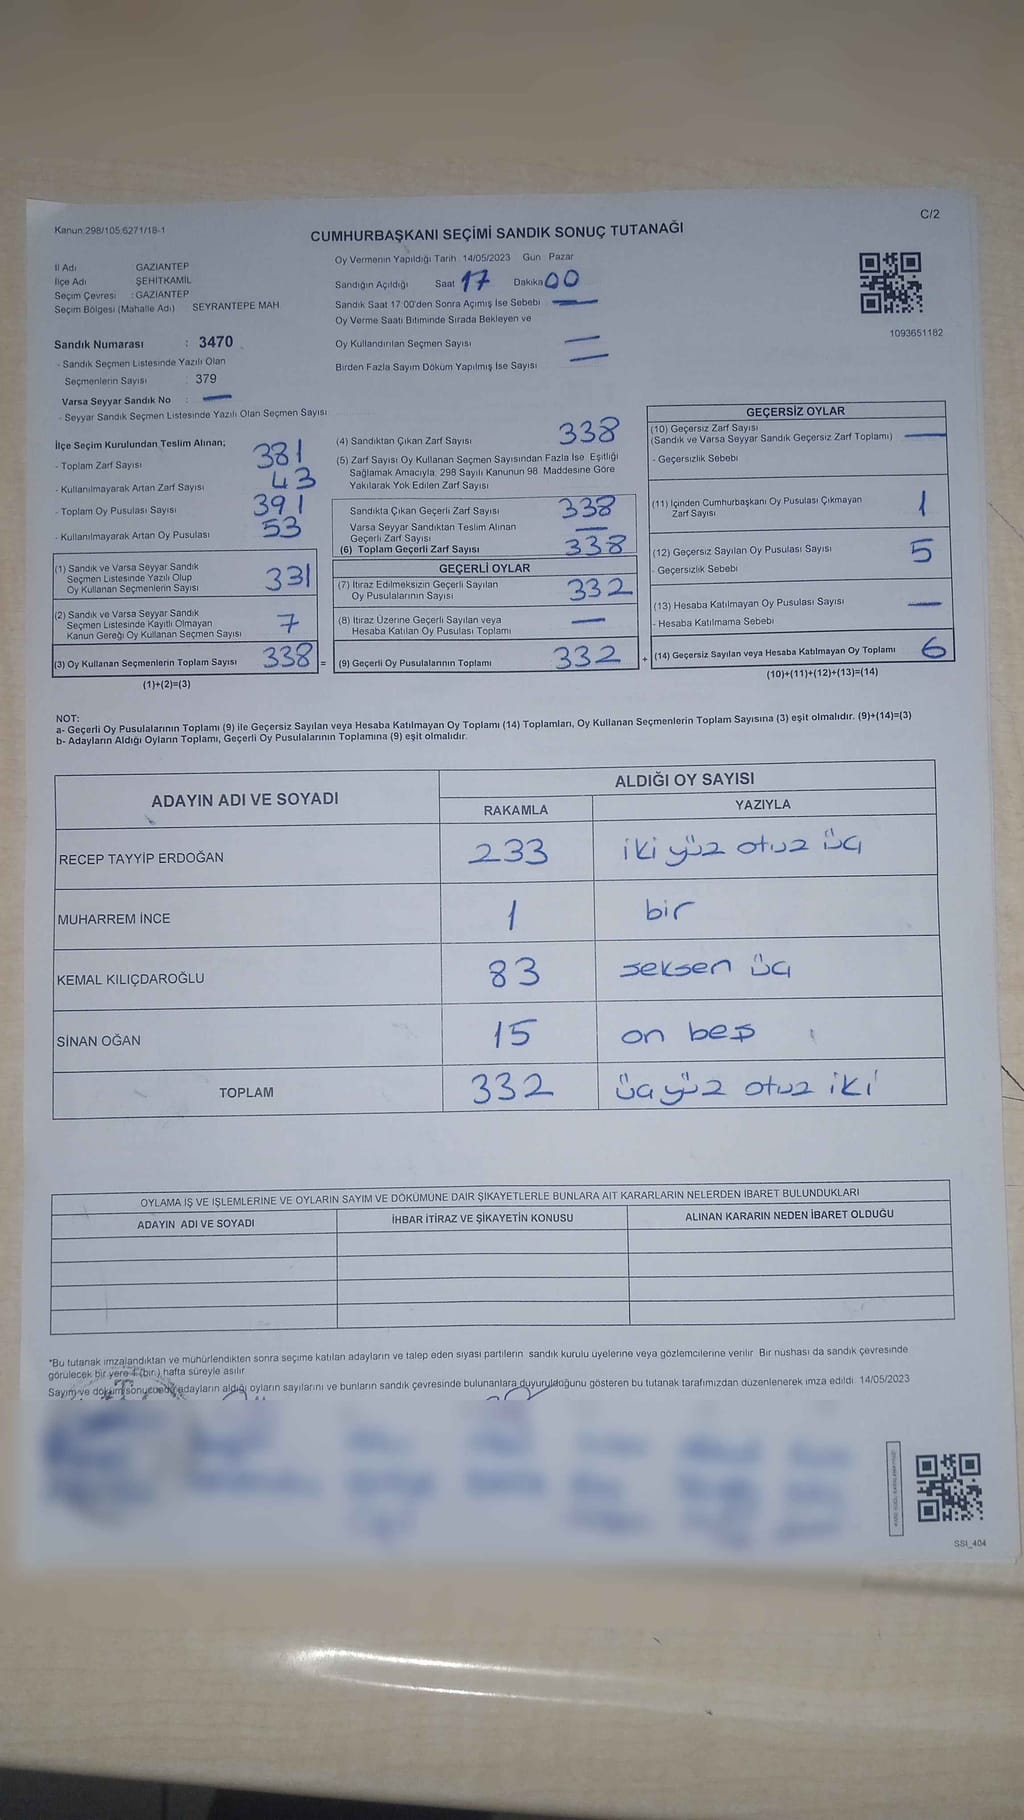 C/2
Kanun:298/105;6271/18-1
CUMHURBAŞKANI SEÇİMİ SANDIK SONUÇ TUTANAĞI
İl Adı GAZİANTEP
İlçe Adı ŞEHİTKAMİL
Seçim Çevresi : GAZİANTEP
Seçim Bölgesi (Mahalle Adı) SEYRANTEPE MAH
Oy Vermenin Yapıldığı Tarih 14/05/2023 Gün Pazar
Sandığın Açıldığı Saat 17 Dakika 00
Sandık Saat 17:00'den Sonra Açımış İse Sebebi —
Oy Verme Saati Bitiminde Sırada Bekleyen ve
Oy Kullandırılan Seçmen Sayısı —
Birden Fazla Sayım Döküm Yapılmış İse Sayısı —
1093651182
Sandık Numarası : 3470
- Sandık Seçmen Listesinde Yazılı Olan
Seçmenlerin Sayısı : 379
Varsa Seyyar Sandık No : —
- Seyyar Sandık Seçmen Listesinde Yazılı Olan Seçmen Sayısı
İlçe Seçim Kurulundan Teslim Alınan;
- Toplam Zarf Sayısı 381
- Kullanılmayarak Artan Zarf Sayısı 43
- Toplam Oy Pusulası Sayısı 391
- Kullanılmayarak Artan Oy Pusulası 53
(1) Sandık ve Varsa Seyyar Sandık
Seçmen Listesinde Yazılı Olup
Oy Kullanan Seçmenlerin Sayısı 331
(2) Sandık ve Varsa Seyyar Sandık
Seçmen Listesinde Kayıtlı Olmayan
Kanun Gereği Oy Kullanan Seçmen Sayısı 7
(3) Oy Kullanan Seçmenlerin Toplam Sayısı 338 =
(1)+(2)=(3)
(4) Sandıktan Çıkan Zarf Sayısı 338
(5) Zarf Sayısı Oy Kullanan Seçmen Sayısından Fazla İse Eşitliği
Sağlamak Amacıyla, 298 Sayılı Kanunun 98. Maddesine Göre
Yakılarak Yok Edilen Zarf Sayısı
Sandıkta Çıkan Geçerli Zarf Sayısı 338
Varsa Seyyar Sandıktan Teslim Alınan
Geçerli Zarf Sayısı —
(6) Toplam Geçerli Zarf Sayısı 338
GEÇERLİ OYLAR
(7) İtiraz Edilmeksizin Geçerli Sayılan
Oy Pusulalarının Sayısı 332
(8) İtiraz Üzerine Geçerli Sayılan veya
Hesaba Katılan Oy Pusulası Toplamı —
(9) Geçerli Oy Pusulalarının Toplamı 332 +
GEÇERSİZ OYLAR
(10) Geçersiz Zarf Sayısı
(Sandık ve Varsa Seyyar Sandık Geçersiz Zarf Toplamı) —
- Geçersizlik Sebebi
(11) İçinden Cumhurbaşkanı Oy Pusulası Çıkmayan
Zarf Sayısı 1
(12) Geçersiz Sayılan Oy Pusulası Sayısı 5
- Geçersizlik Sebebi
(13) Hesaba Katılmayan Oy Pusulası Sayısı —
- Hesaba Katılmama Sebebi
(14) Geçersiz Sayılan veya Hesaba Katılmayan Oy Toplamı 6
(10)+(11)+(12)+(13)=(14)
NOT:
a- Geçerli Oy Pusulalarının Toplamı (9) ile Geçersiz Sayılan veya Hesaba Katılmayan Oy Toplamı (14) Toplamları, Oy Kullanan Seçmenlerin Toplam Sayısına (3) eşit olmalıdır. (9)+(14)=(3)
b- Adayların Aldığı Oyların Toplamı, Geçerli Oy Pusulalarının Toplamına (9) eşit olmalıdır.
ADAYIN ADI VE SOYADI ALDIĞI OY SAYISI
RAKAMLA YAZIYLA
RECEP TAYYİP ERDOĞAN 233 iki yüz otuz üç
MUHARREM İNCE 1 bir
KEMAL KILIÇDAROĞLU 83 seksen üç
SİNAN OĞAN 15 on beş
TOPLAM 332 üç yüz otuz iki
OYLAMA İŞ VE İŞLEMLERİNE VE OYLARIN SAYIM VE DÖKÜMÜNE DAİR ŞİKAYETLERLE BUNLARA AİT KARARLARIN NELERDEN İBARET BULUNDUKLARI
ADAYIN ADI VE SOYADI İHBAR İTİRAZ VE ŞİKAYETİN KONUSU ALINAN KARARIN NEDEN İBARET OLDUĞU
*Bu tutanak imzalandıktan ve mühürlendikten sonra seçime katılan adayların ve talep eden siyasi partilerin sandık kurulu üyelerine veya gözlemcilerine verilir. Bir nüshası da sandık çevresinde
görülecek bir yere 1 (bir) hafta süreyle asılır
Sayım ve döküm sonucunda adayların aldığı oyların sayılarını ve bunların sandık çevresinde bulunanlara duyurulduğunu gösteren bu tutanak tarafımızdan düzenlenerek imza edildi. 14/05/2023
SSI_404